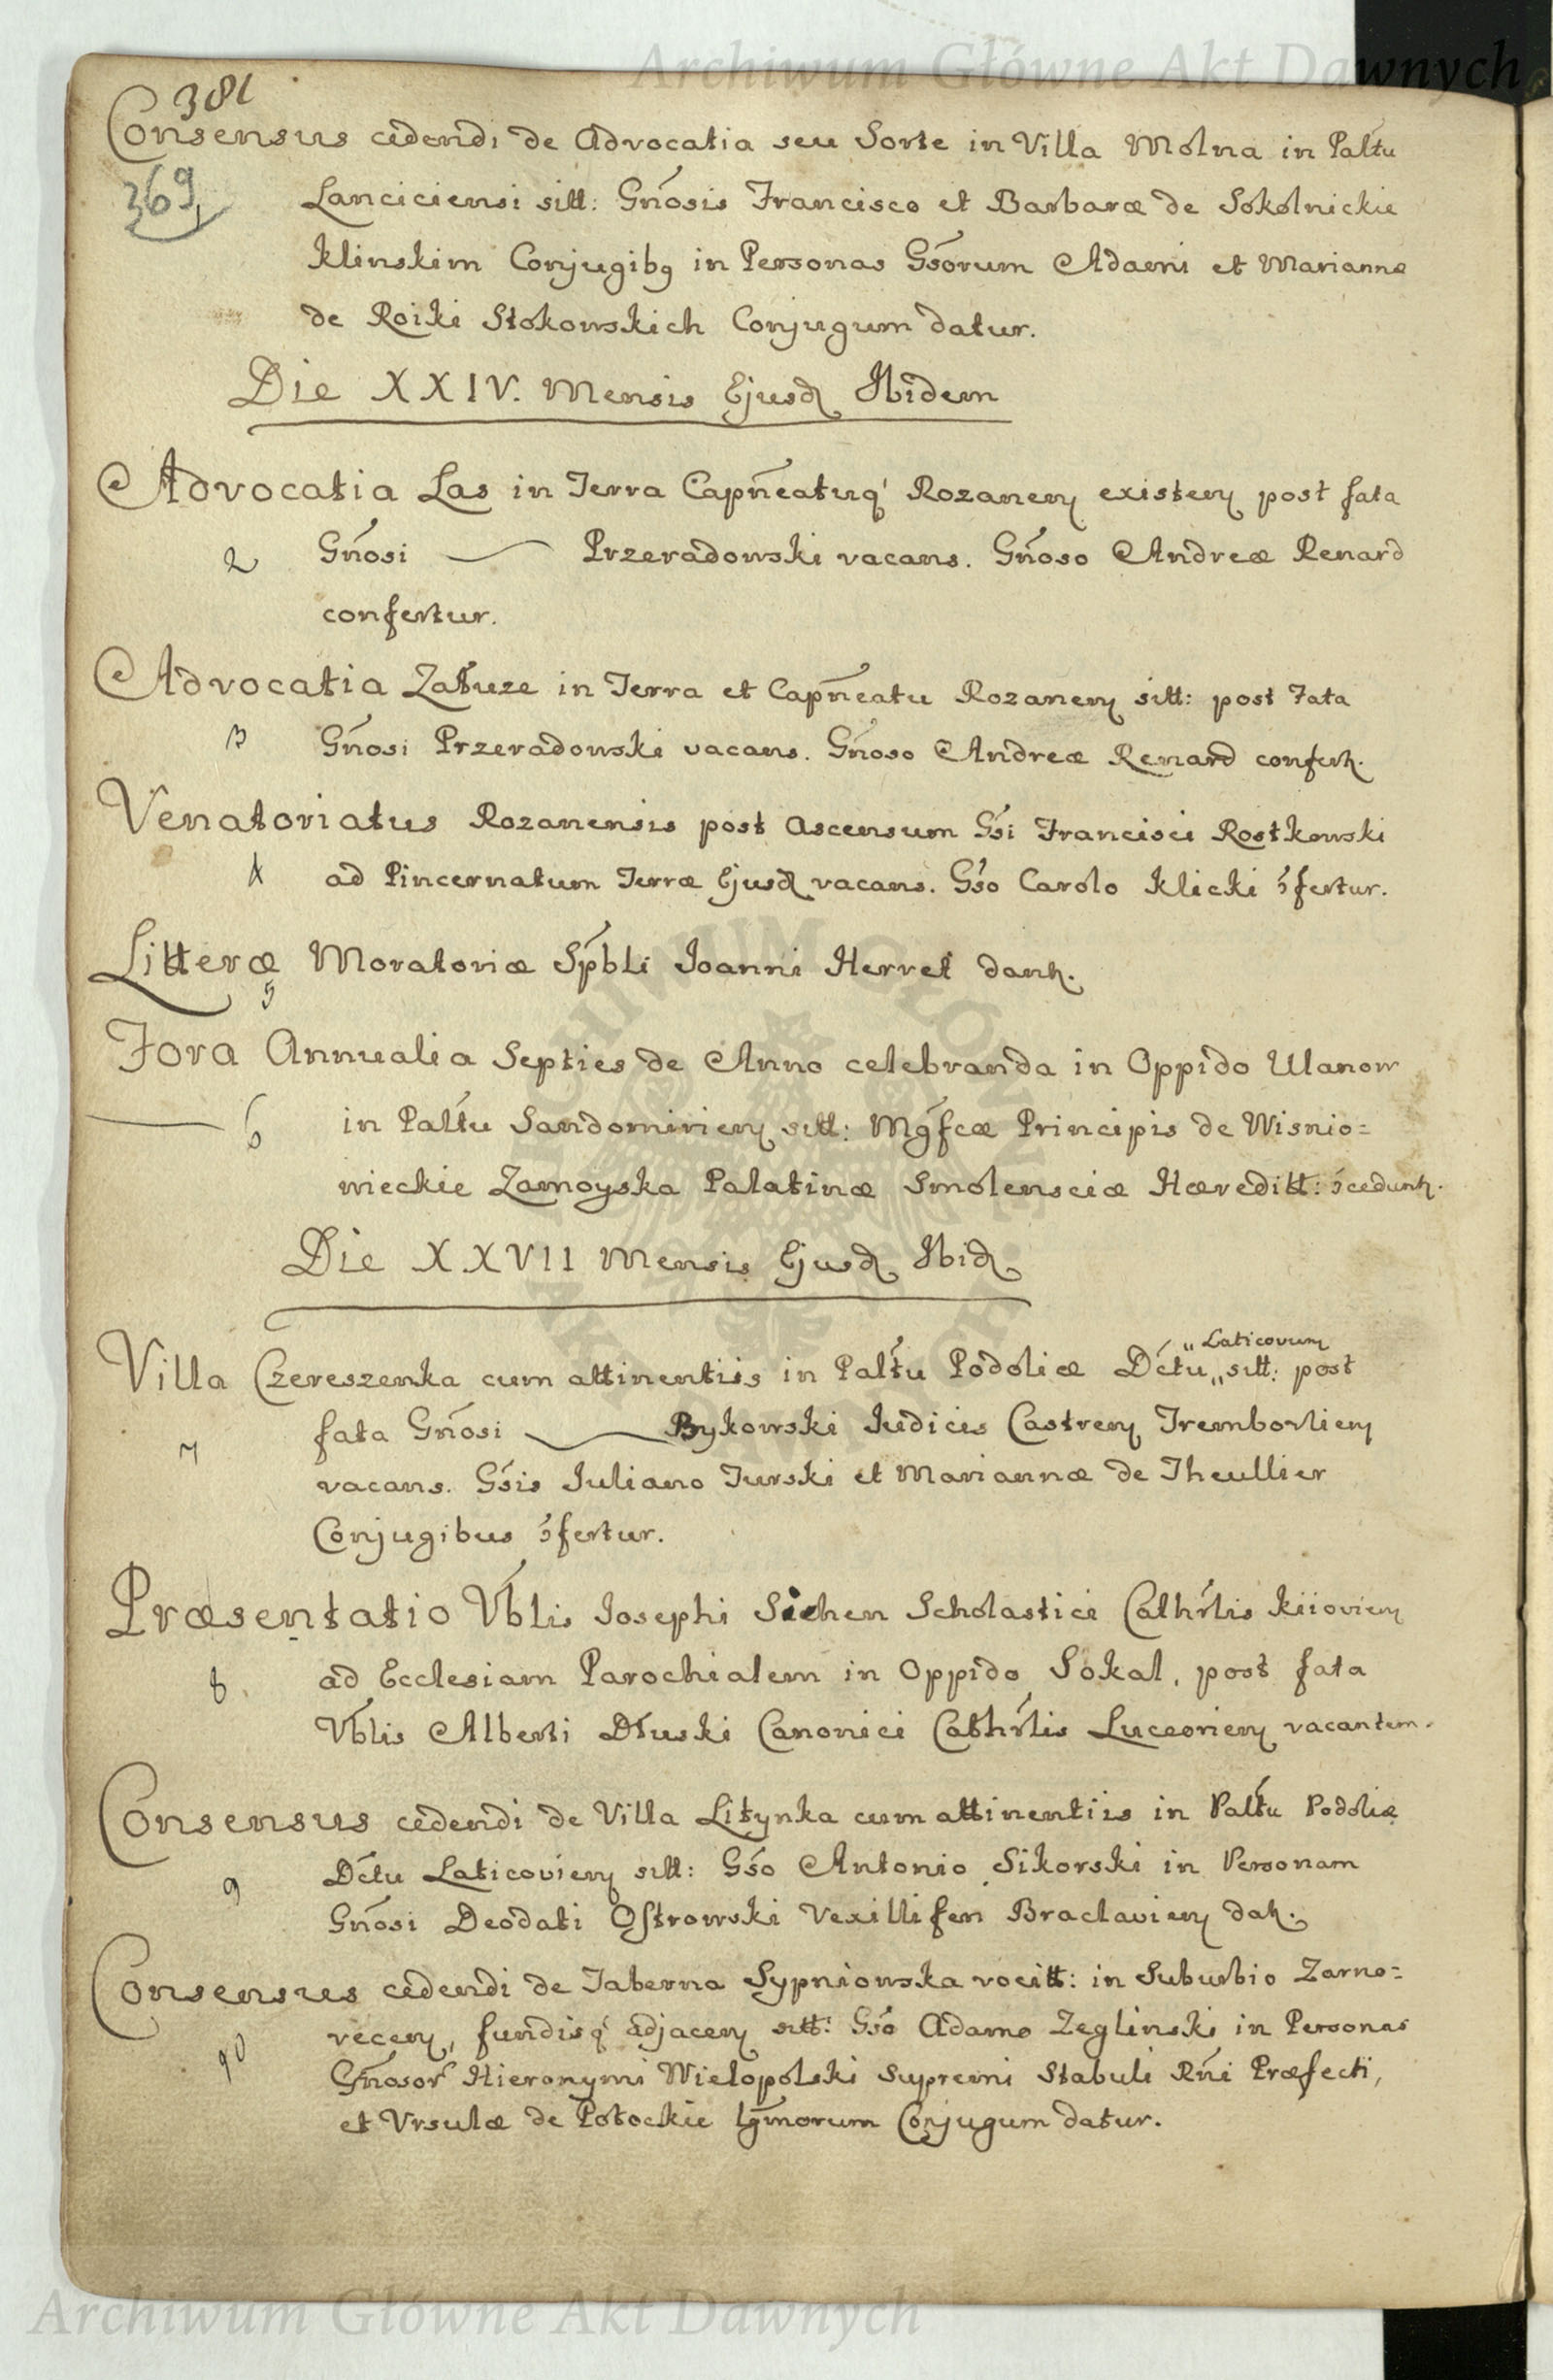 Archiwum Główne Akt Dawnych
381
Consensus cedendi de Advocatia seu Sorte in Villa Molna in Paltu
369
Lanciciensi sitt: Gnosis Francisco et Barbaræ de Sokolnickie
Klinskim Conjugibg in Personas Gsorum Adami et Mariannæ
de Roiki Stokowskich Conjugum datur.
Die XXIV. Mensis Ejusd Ibidem
Advocatia Las in Terra Capneatuq Rozanen existen post fata
2 Gnosi Przeradowski vacans. Gnoso Andreæ Renard
confertur.
Advocatia Załuze in Terra et Capneatu Rozanen sitt: post Fata
3 Gnosi Przeradowski vacans. Gnoso Andreæ Renard confert.
Venatoriatus Rozanensis post ascensum Gsi Francisci Rostkowski
4 ad Pincernatum Terræ Ejusd vacans. Gso Carolo Klicki ɔfertur.
Litteræ Moratoriæ Spbli Joanni Herret dant.
5
Fora Annualia Septies de Anno celebranda in Oppido Ulanow
6 in Paltu Sandomirien sitt: Mgfcæ Principis de Wisnio=
wieckie Zamoyska Palatinæ Smolensciæ Hæreditt: ɔcedunt.
Die XXVII Mensis Ejusd Ibid
Laticovien
Villa Czereszenka cum attinentiis in Paltu Podoliæ Dctu „ sitt: post
fata Gnosi Bykowski Judicis Castren Trembovlien
7
vacans. Gsis Juliano Jurski et Mariannæ de Theullier
Conjugibus ɔfertur.
Præsentatio Vblis Josephi Sichen Scholastici Cathrlis Kiiovien
8 ad Ecclesiam Parochialem in Oppido Sokal, post fata
Vblis Alberti Dłuski Canonici Cathrlis Luceorien vacantem.
Consensus cedendi de Villa Litynka cum attinentiis in Paltu Podoliæ
9 Dctu Laticovien sitt: Gso Antonio Sikorski in Personam
Gnosi Deodati Ostrowski Vexilliferi Braclavien dat.
Consensus cedendi de Taberna Sypniowska vocitt: in Suburbio Zarno=
vecen, fundisq adjacen sitt: Gso Adamo Zeglinski in Personas
10 Gnosor Hieronymi Wielopolski Supremi Stabuli Rni Præfecti,
et Vrsulæ de Potockie Igmorum Conjugum datur.
Archiwum Główne Akt Dawnych